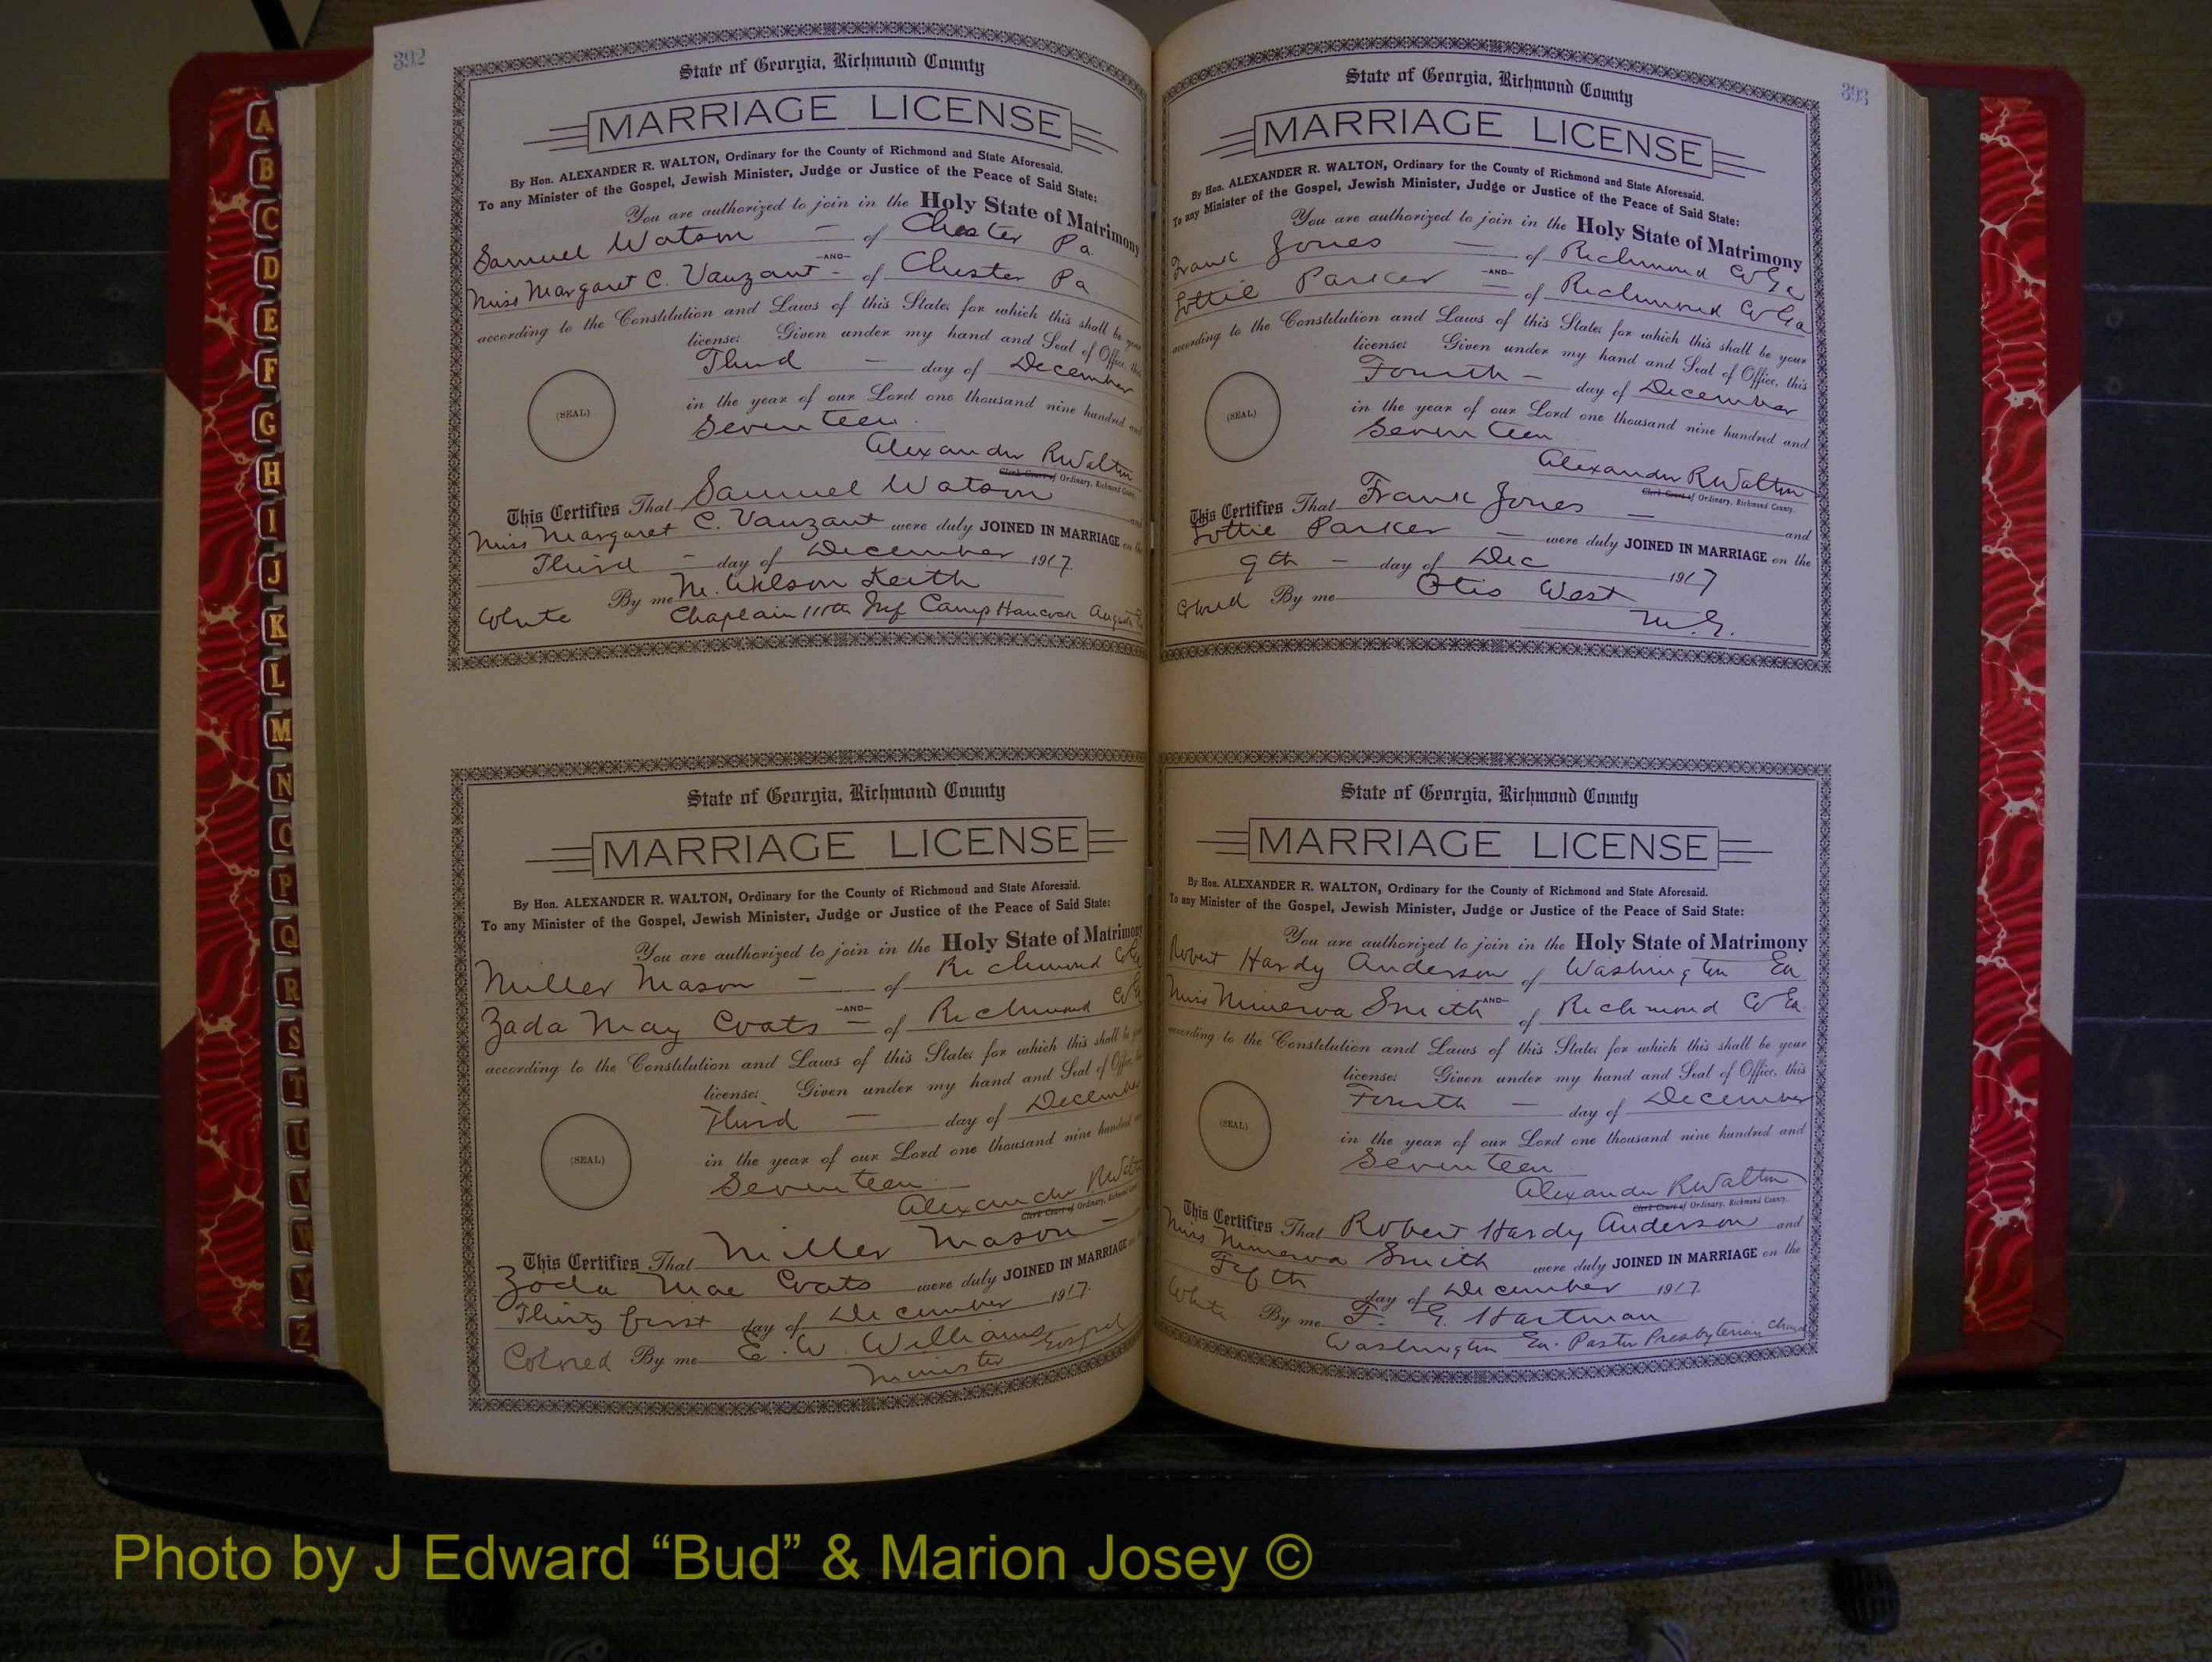 392
State of Georgia, Richmond County
MARRIAGE LICENSE
By Hon. ALEXANDER R. WALTON, Ordinary for the County of Richmond and State Aforesaid.
To any Minister of the Gospel, Jewish Minister, Judge or Justice of the Peace of Said State:
You are authorized to join in the Holy State of Matrimony
Samuel Watson — of Chester Pa
—AND—
Miss Margaret C. Vanzant - of Chester Pa
according to the Constitution and Laws of this State, for which this shall be your
license: Given under my hand and Seal of Office, this
Third — day of December
in the year of our Lord one thousand nine hundred and
Seventeen
(SEAL)
Alexander R Walton
Clerk Court of Ordinary, Richmond County
This Certifies That Samuel Watson and
Miss Margaret C. Vanzant were duly JOINED IN MARRIAGE on the
Third - day of December 1917.
White By me M. Wilson Keith
Chaplain 110th Inf Camp Hancock Augusta
State of Georgia, Richmond County
MARRIAGE LICENSE
By Hon. ALEXANDER R. WALTON, Ordinary for the County of Richmond and State Aforesaid.
To any Minister of the Gospel, Jewish Minister, Judge or Justice of the Peace of Said State:
You are authorized to join in the Holy State of Matrimony
Miller Mason — of Richmond Co Ga
—AND—
Zada May Coats — of Richmond Co Ga
according to the Constitution and Laws of this State, for which this shall be your
license: Given under my hand and Seal of Office, this
Third — day of December
in the year of our Lord one thousand nine hundred and
Seventeen —
(SEAL)
Alexander R Walton
Clerk Court of Ordinary, Richmond County
This Certifies That Miller Mason —
Zada Mae Coats were duly JOINED IN MARRIAGE on the
Thirty first day of December 1917.
Colored By me E. W. Williams Gospel
Minister
393
State of Georgia, Richmond County
MARRIAGE LICENSE
By Hon. ALEXANDER R. WALTON, Ordinary for the County of Richmond and State Aforesaid.
To any Minister of the Gospel, Jewish Minister, Judge or Justice of the Peace of Said State:
You are authorized to join in the Holy State of Matrimony
Frank Jones — of Richmond Co Ga
—AND—
Lottie Parker — of Richmond Co Ga
according to the Constitution and Laws of this State, for which this shall be your
license: Given under my hand and Seal of Office, this
Fourth — day of December
in the year of our Lord one thousand nine hundred and
Seventeen
(SEAL)
Alexander R Walton
Clerk Court of Ordinary, Richmond County.
This Certifies That Frank Jones — and
Lottie Parker — were duly JOINED IN MARRIAGE on the
9th — day of Dec 1917
Colored By me Otis West
M.G.
State of Georgia, Richmond County
MARRIAGE LICENSE
By Hon. ALEXANDER R. WALTON, Ordinary for the County of Richmond and State Aforesaid.
To any Minister of the Gospel, Jewish Minister, Judge or Justice of the Peace of Said State:
You are authorized to join in the Holy State of Matrimony
Robert Hardy Anderson of Washington Ga
—AND—
Miss Minerva Smith of Richmond Co Ga
according to the Constitution and Laws of this State, for which this shall be your
license: Given under my hand and Seal of Office, this
Fourth — day of December
in the year of our Lord one thousand nine hundred and
Seventeen
(SEAL)
Alexander R Walton
Clerk Court of Ordinary, Richmond County.
This Certifies That Robert Hardy Anderson and
Miss Minerva Smith were duly JOINED IN MARRIAGE on the
Fifth day of December 1917.
White By me F. G. Hartman
Washington Ga. Pastor Presbyterian Church
A
B
C
D
E
F
G
H
I
J
K
L
M
N
O
P
Q
R
S
T
U
V
W
Y
Z
Photo by J Edward “Bud” & Marion Josey ©